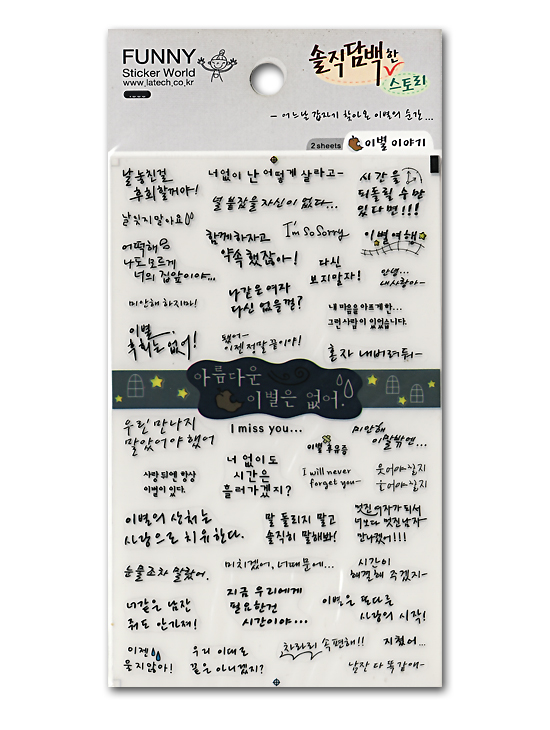 FUNNY
Sticker World
www.latech.co.kr
솔직담백한
스토리
- 어느날 갑자기 찾아온 이별의 순간...
2 sheets
이별 이야기
날 놓친걸
후회할꺼야!
너 없이 난 어떻게 살라고-
시간을
되돌릴 수만
있다면!!!
날 잊지 말아요
열 붙잡을 자신이 없다...
I'm So Sorry
함께 하자고
약속했잖아!
이별여행
어떡해
나도 모르게
너의 집앞이야...
다신
보지말자!
안녕...
내사랑아-
나같은 여자
다신 없을껄?
미안해 하지마!
내 마음을 아프게 한...
그런 사람이 있었습니다.
이별..
후회는 없어!
됐어-
이젠 정말 끝이야!
혼자 내버려둬-
아름다운
이별은 없어.
우린 만나지
말았어야 했어
I miss you...
미안해
이말밖엔...
이별 후유증
너 없이도
시간은
흘러가겠지?
사랑 뒤엔 항상
이별이 있다.
I will never
forget you-
웃어야 할지
울어야 할지
이별의 상처는
사랑으로 치유한다.
말 돌리지 말고
솔직히 말해봐!
멋진여자가 되서
너보다 멋진남자
만나겠어!!!
눈물조차 말랐어.
미치겠어, 너때문에...
시간이
해결해 주겠지-
너같은 남잔
줘도 안가져!
지금 우리에게
필요한건
시간이야...
이별은 또다른
사랑의 시작!
이젠
울지않아!
우리 이대로
끝은 아니겠지?
차라리 속편해!!
지쳤어...
남잔 다 똑같애-